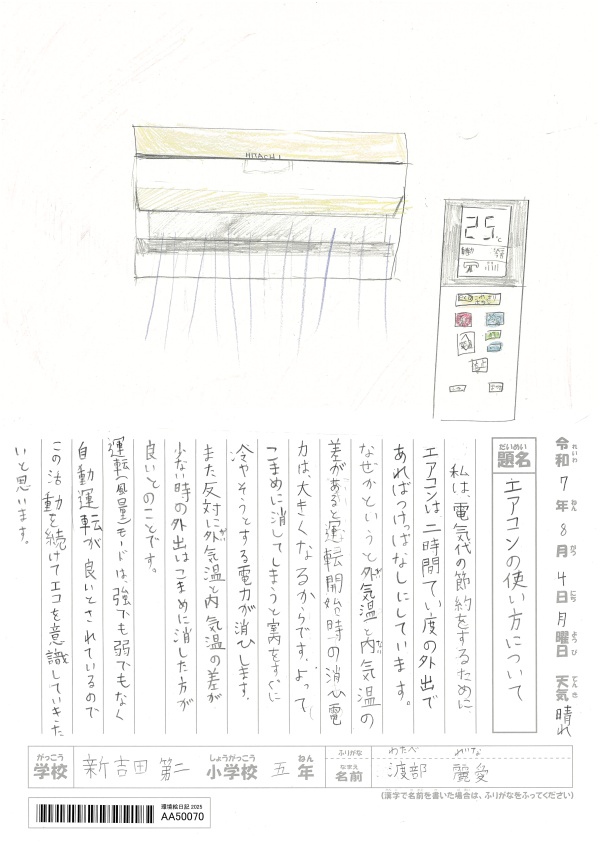 HITACHI
25℃
自動
令和7年8月4日月曜日 天気 晴れ
れいわ ねん がつ にち ようび てんき
だいめい
題名
エアコンの使い方について
私は、電気代の節約をするために、
エアコンは二時間てい度の外出で
あればつけっぱなしにしています。
なぜかというと外気温と内気温の
差があると運転開始時の消ひ電
力は、大きくなるからです。よって
こまめに消してしまうと室内をすぐに
冷やそうとする電力が消ひします。
また反対に外気温と内気温の差が
少ない時の外出はこまめに消した方が
良いとのことです。
運転(風量)モードは、強でも弱でもなく
自動運転が良いとされているので
この活動を続けてエコを意識していきた
いと思います。
がっこう しょうがっこう ねん
学校 新吉田第二 小学校 五年
ふりがな わたべ
なまえ
名前 渡部 麗愛
(漢字で名前を書いた場合は、ふりがなをふってください)
環境絵日記 2025
AA50070